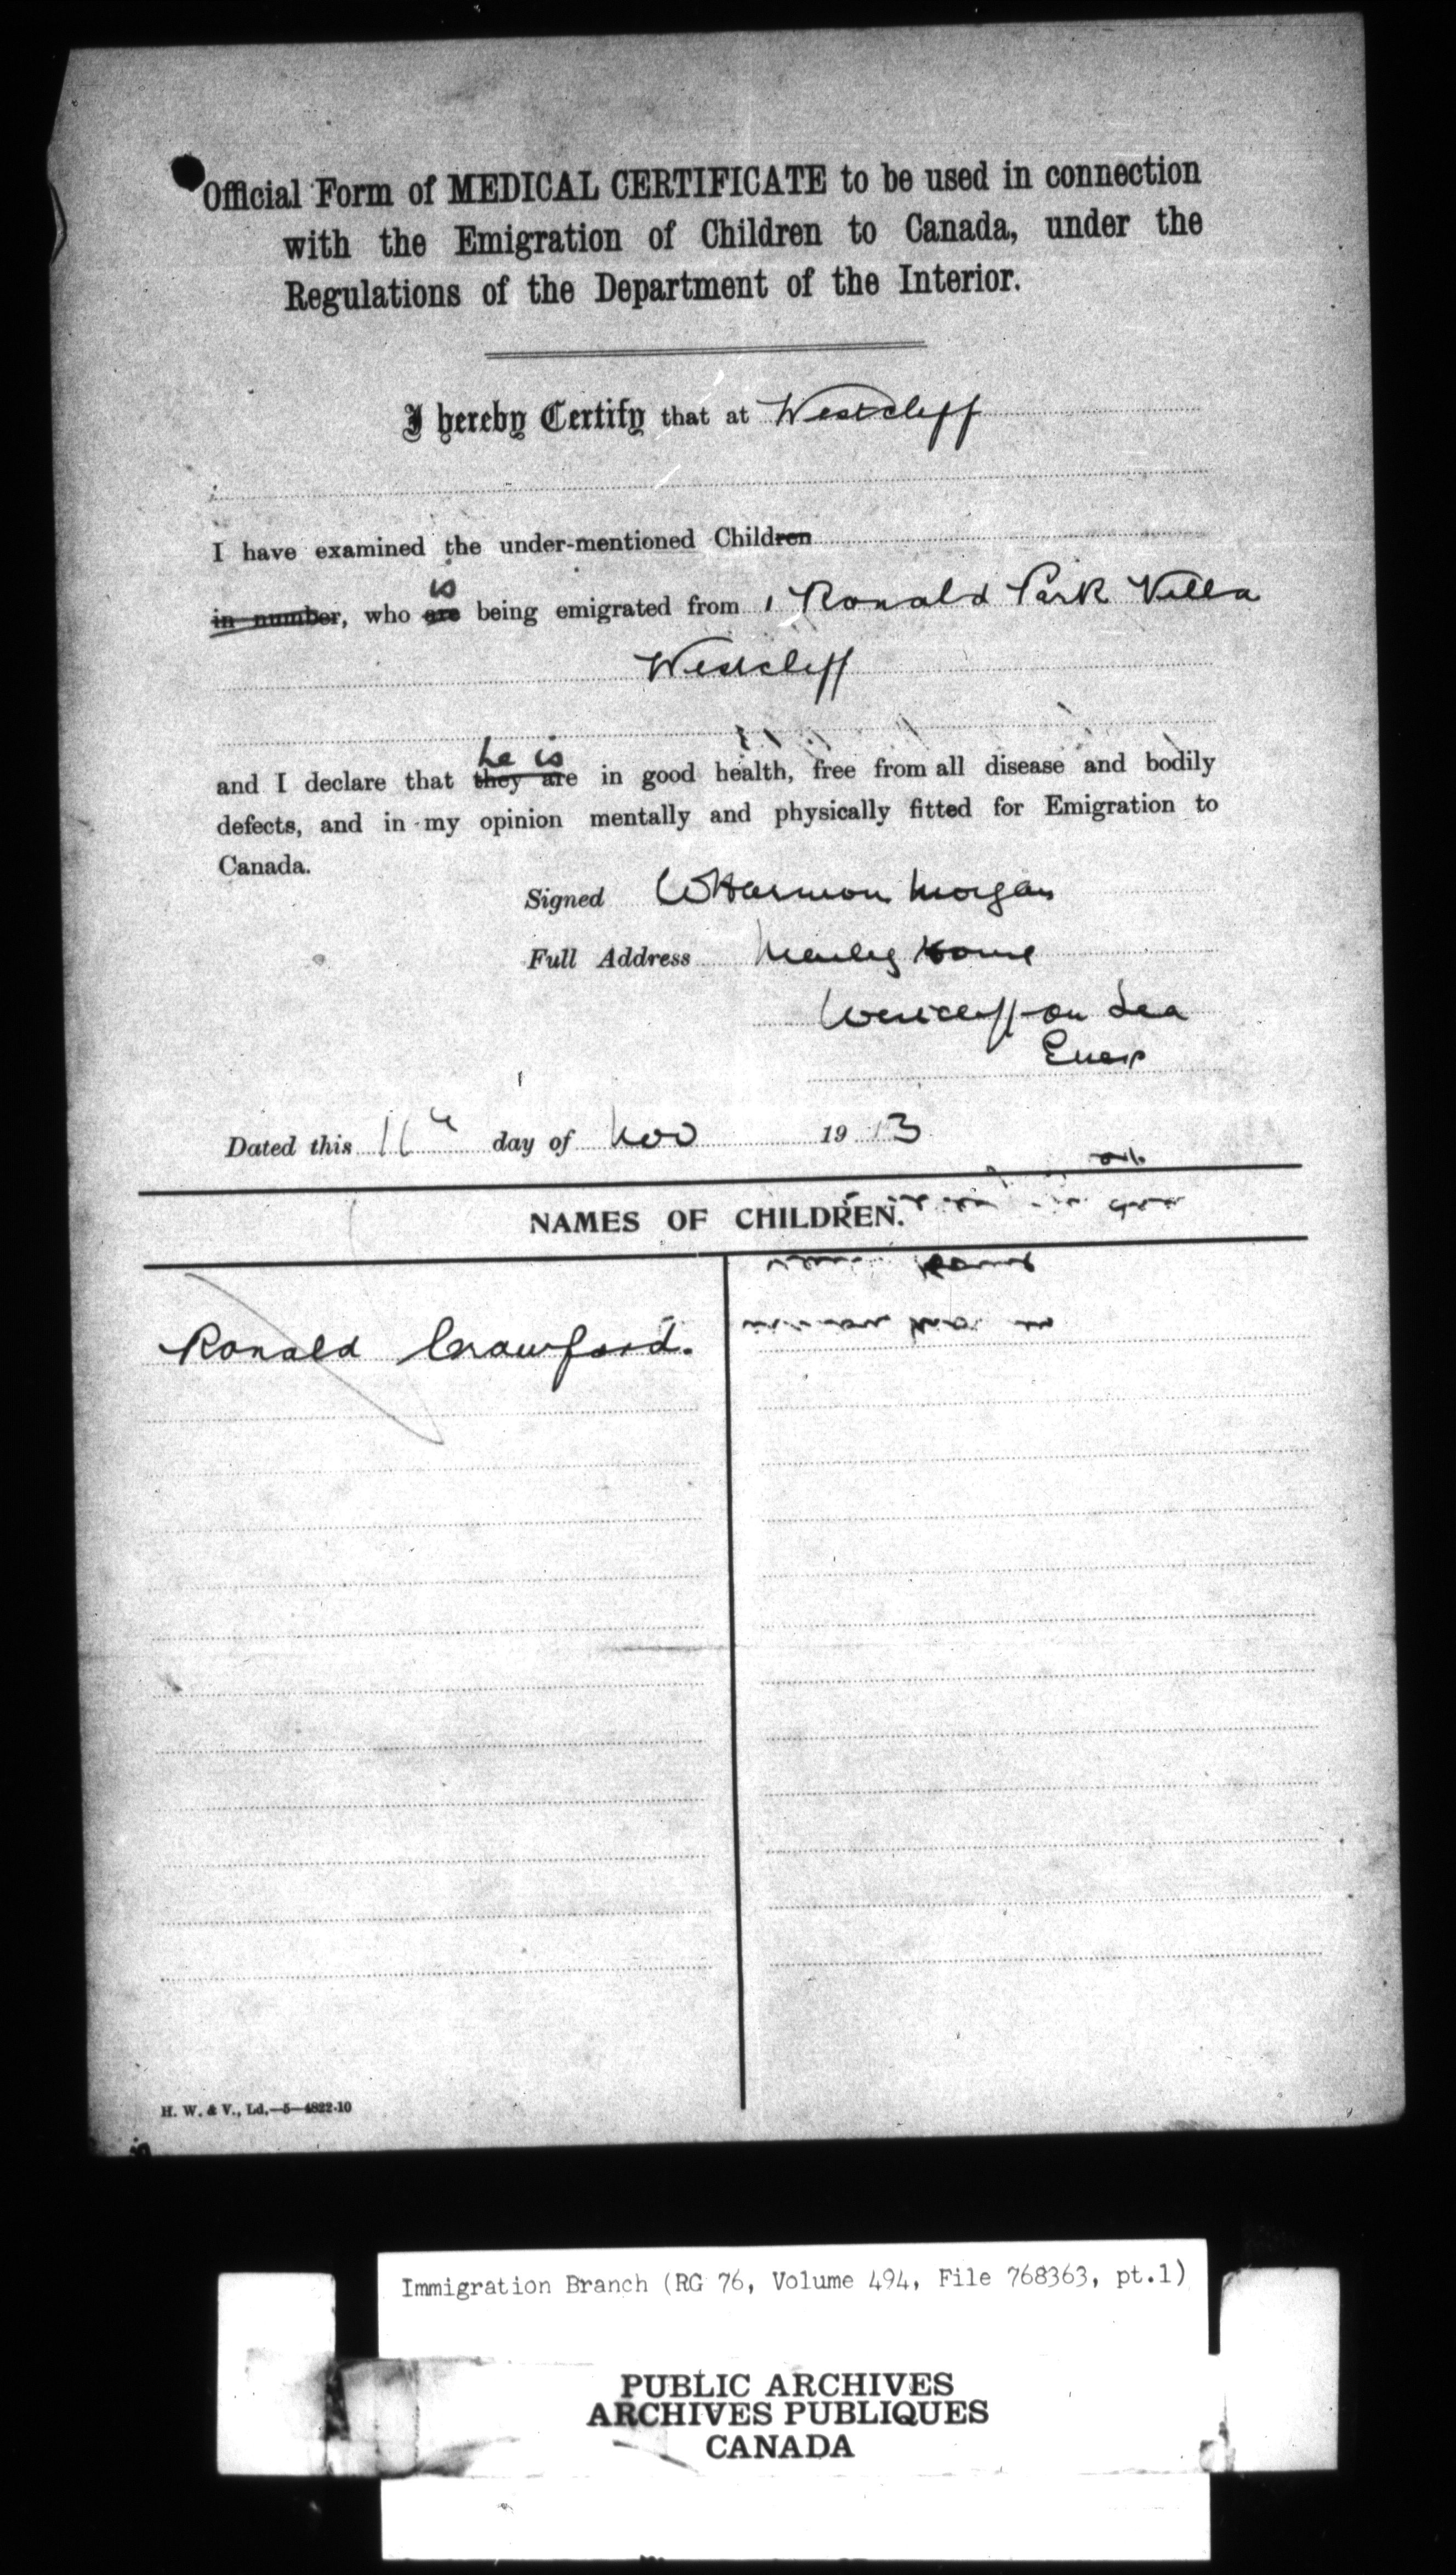 Official Form of MEDICAL CERTIFICATE to be used in connection
with the Emigration of Children to Canada, under the
Regulations of the Department of the Interior.
I hereby Certify that at Westcliff
I have examined the under-mentioned Children
is
in number, who are being emigrated from 1 Ronald Park Villa
Westcliff
he is
and I declare that they are in good health, free from all disease and bodily
defects, and in my opinion mentally and physically fitted for Emigration to
Canada.
Signed W Harmon Morgan
Full Address House
Westcliff on Sea
Essex
Dated this 11th day of Nov 1913
NAMES OF CHILDREN.
Ronald Crawford.
H. W. & V., Ld.—5—4822-10
Immigration Branch (RG 76, Volume 494, File 768363, pt.1)
PUBLIC ARCHIVES
ARCHIVES PUBLIQUES
CANADA